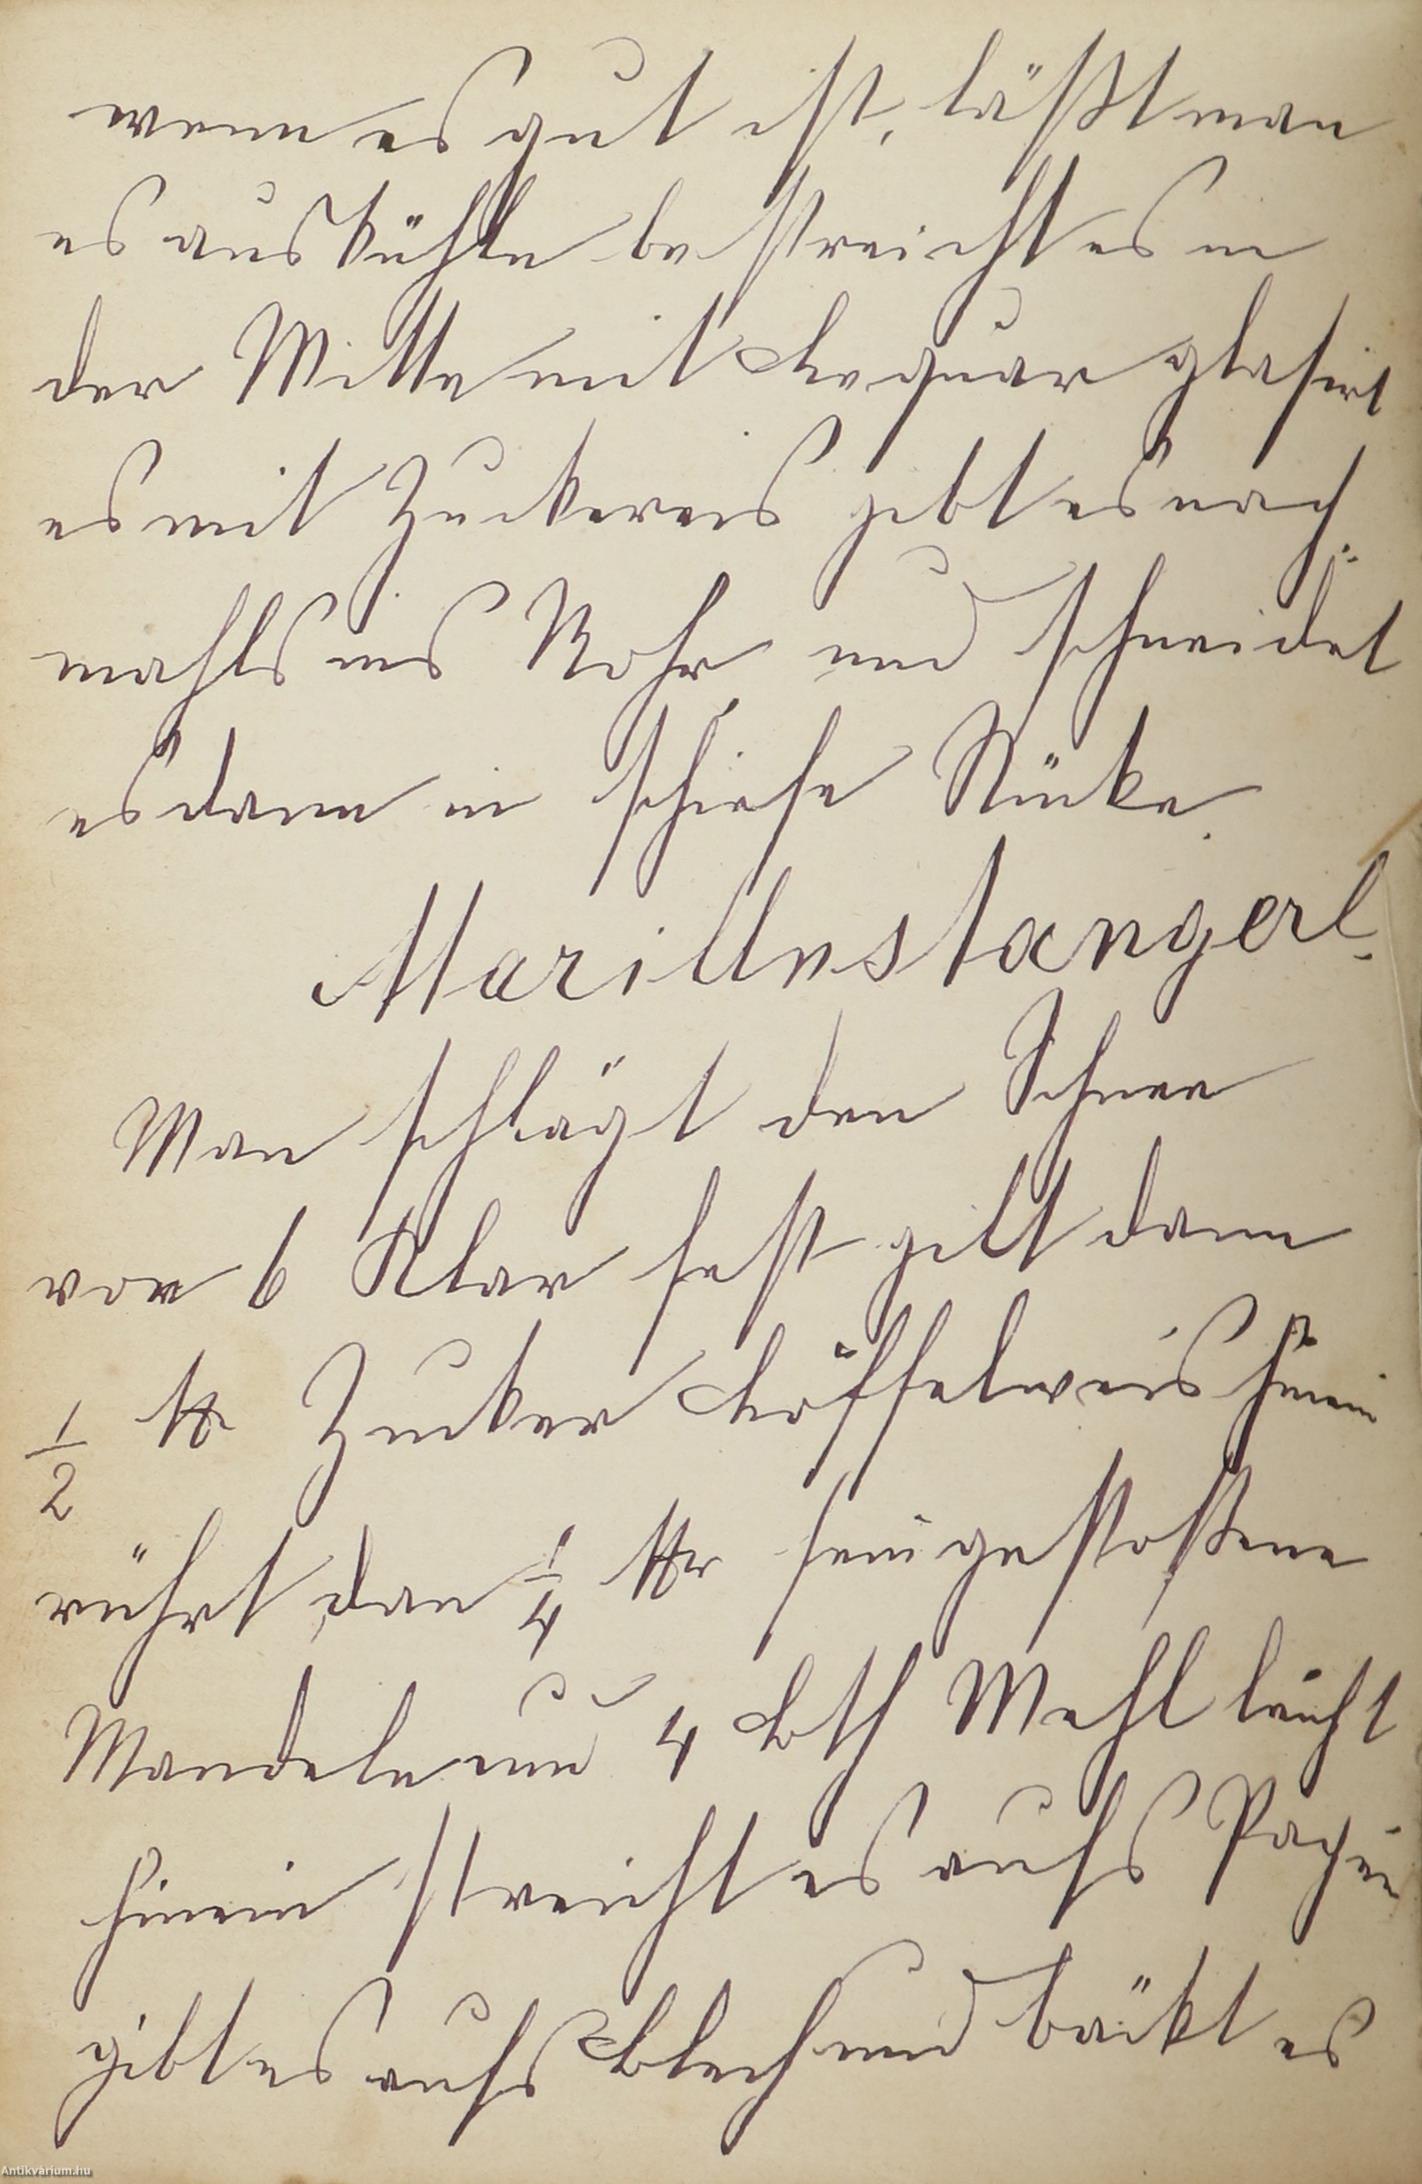 wenn es gut ist, läßt man
es auskühln bestreicht es in
der Mitte mit Lequar glasirt
es mit Zuckereis gibt es noch
mahls ins Rohr und schneidet
es dann in schiefe Stücke.
Marillnstangerl.
Man schlägt den Schnee
von 6 Klar fest gibt dann
1/2 ℔ Zucker Löffelweis hinein
rührt dan 1/4 ℔ feingestoßene
Mandeln und 4 Lth Mehl leicht
hinein streicht es aufs Papier
gibt es aufs Blech und bäckt es
Antikvarium.hu